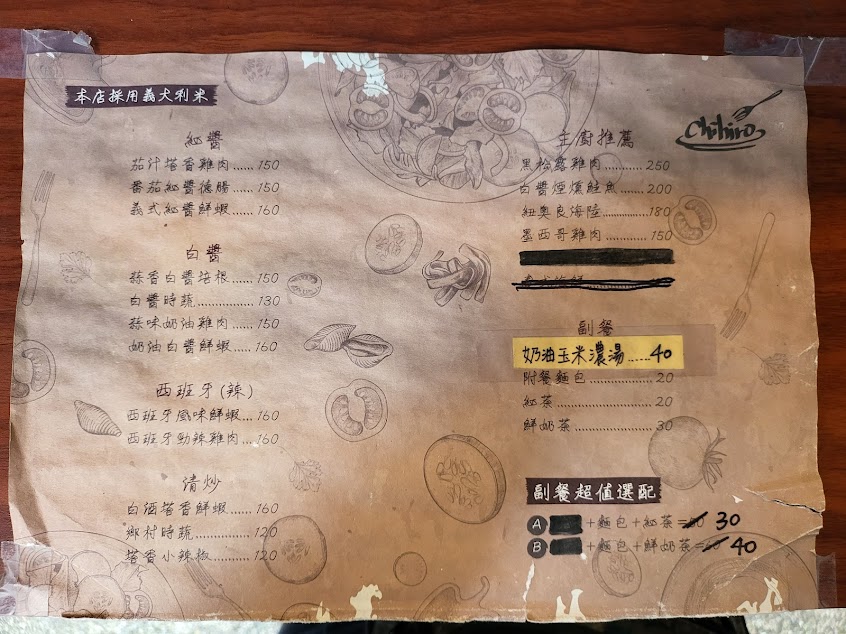 本店採用義大利米
紅醬
茄汁塔香雞肉......150
番茄紅醬德腸......150
義式紅醬鮮蝦......160
白醬
蒜香白醬培根......150
白醬時蔬..............130
蒜味奶油雞肉......150
奶油白醬鮮蝦......160
西班牙(辣)
西班牙風味鮮蝦...160
西班牙勁辣雞肉...160
清炒
白酒塔香鮮蝦......160
鄉村時蔬..............120
塔香小辣椒..........120
Chihiro
主廚推薦
黑松露雞肉...........250
白醬煙燻鮭魚.......200
紐奧良海陸...........180
墨西哥雞肉...........150
副餐
奶油玉米濃湯......40
附餐麵包................20
紅茶........................20
鮮奶茶....................30
副餐超值選配
A +麵包+紅茶= 30
B +麵包+鮮奶茶= 40